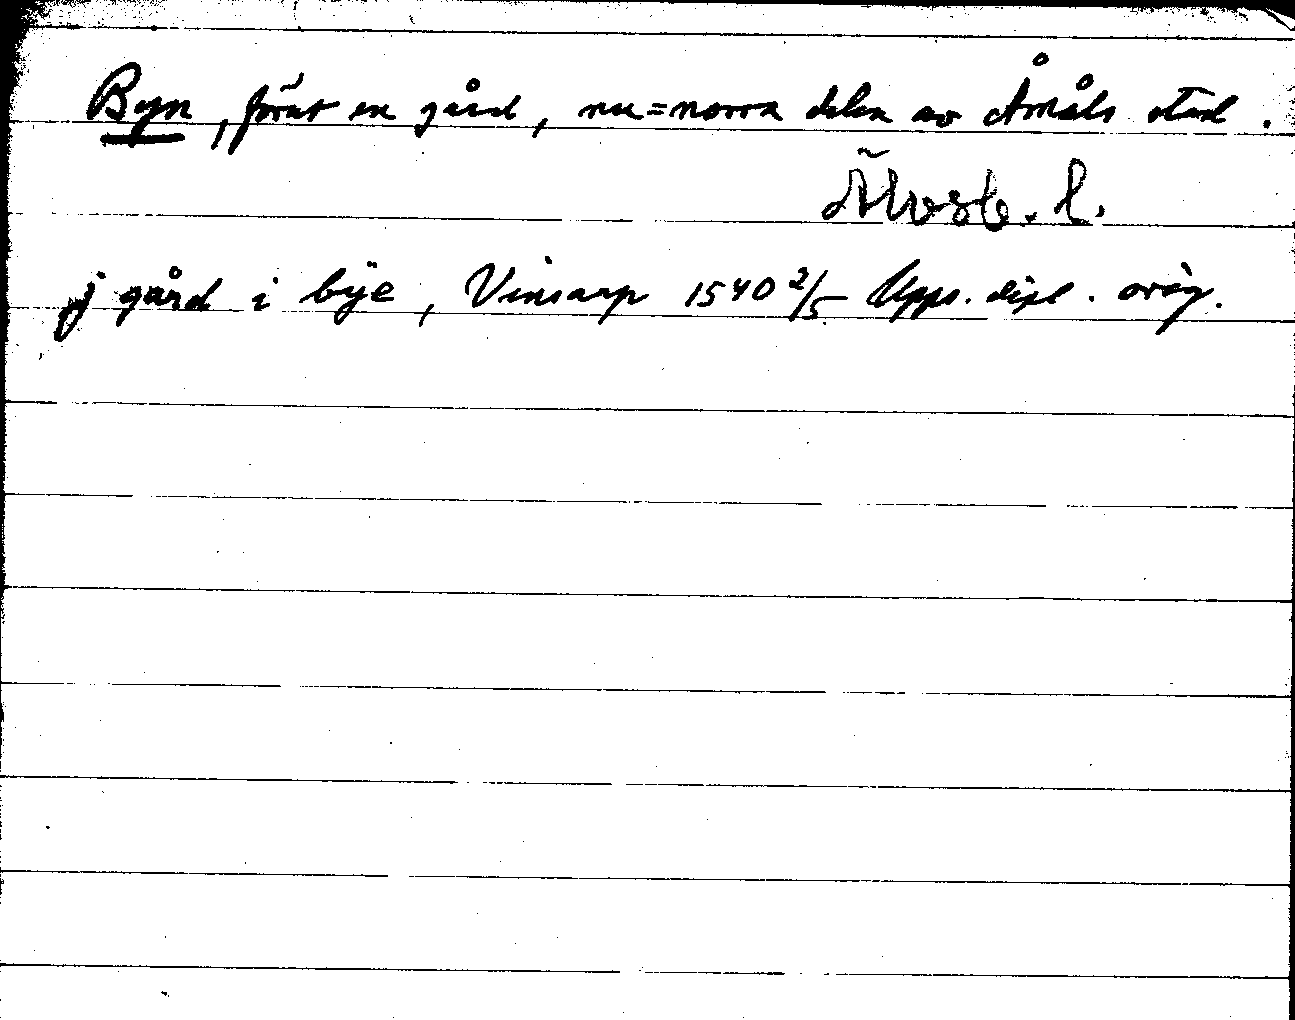 Byn, förut en gård, nu = norra delen av Åmåls stad.
Älvsb. l.
j gård i bÿe, Vinsarp 1540 2/5 Upps. dipl. orig.